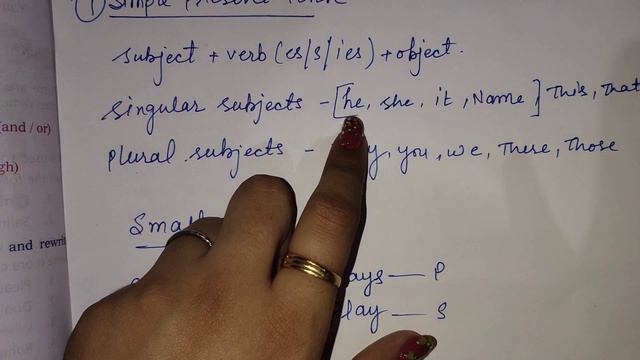 ① Simple Present Tense
subject + verb (es/s/ies) + object.
singular subjects - [he, she, it, Name] This, That
(and / or)
plural subjects - you, we, There, Those
gh)
and rewrit
ays — P
lay — S